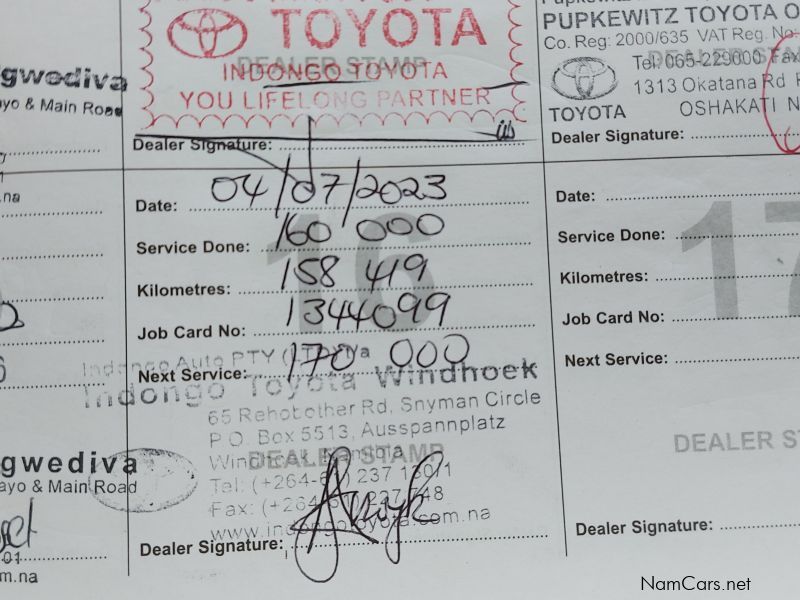 TOYOTA
DEALER STAMP
INDONGO TOYOTA
YOU LIFELONG PARTNER
Dealer Signature:
PUPKEWITZ TOYOTA O
Co. Reg: 2000/635 VAT Reg. No:
DEALER STAMP
Tel: 065-229000 Fax
1313 Okatana Rd
TOYOTA
OSHAKATI N
Dealer Signature:
ngwediva
ayo & Main Road
.na
16
Date: 04/07/2023
Service Done: 160 000
Kilometres: 158 419
Job Card No: 1344099
Next Service: 170 000
Indongo Auto PTY
Indongo Toyota Windhoek
65 Rehobother Rd, Snyman Circle
P.O. Box 5513, Ausspannplatz
Windhoek, Namibia
DEALER STAMP
Tel: (+264-61) 237
Fax: (+264-61) 237
www.indongotoyota.com.na
Dealer Signature:
gwediva
ayo & Main Road
01
m.na
17
Date:
Service Done:
Kilometres:
Job Card No:
Next Service:
DEALER ST
Dealer Signature:
NamCars.net